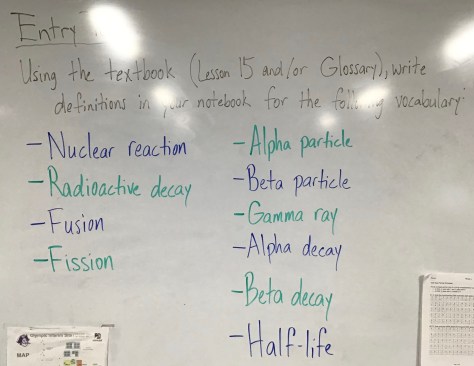 Entry
Using the textbook (Lesson 15 and/or Glossary), write
definitions in your notebook for the following vocabulary:
-Nuclear reaction
-Radioactive decay
-Fusion
-Fission
-Alpha particle
-Beta particle
-Gamma ray
-Alpha decay
-Beta decay
-Half-life
MAP